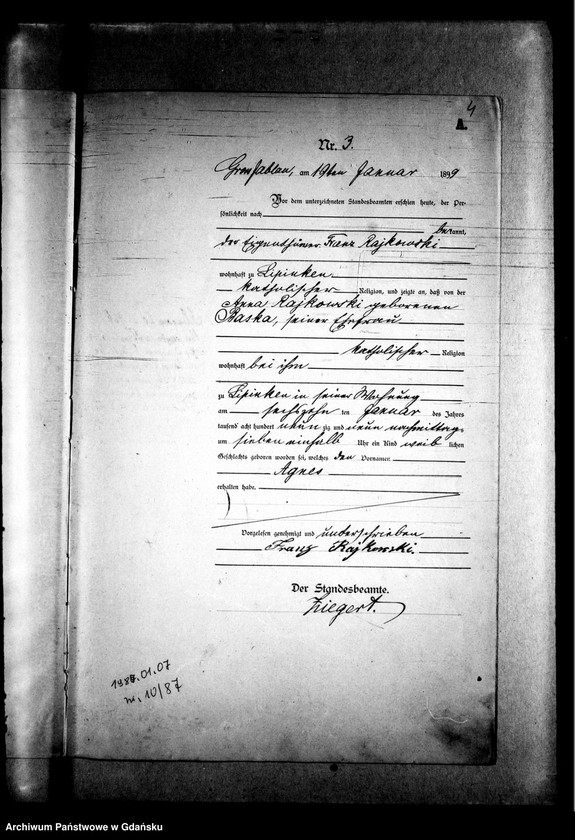 4
A.
Nr. 3.
Gross Jablau, am 19ten Januar 1899
Vor dem unterzeichneten Standesbeamten erschien heute, der Per-
sönlichkeit nach
bekannt,
der Eigenthümer Franz Rajkowski
wohnhaft zu Lipinken
katholischer Religion, und zeigte an, daß von der
Anna Rajkowski geborenen
Baska, seiner Ehefrau
katholischer Religion
wohnhaft bei ihm
zu Lipinken in seiner Wohnung
am sechszehn ten Januar des Jahres
tausend acht hundert neun zig und neun nachmittags
um sieben einhalb Uhr ein Kind weib lichen
Geschlechts geboren worden sei, welches den Vornamen
Agnes
erhalten habe.
Vorgelesen genehmigt und unterschrieben
Franz Rajkowski.
Der Standesbeamte.
Ziegert.
01.07
nr. 10/87
Archiwum Państwowe w Gdańsku